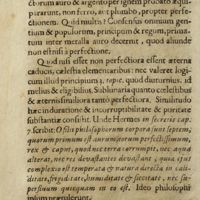 ctorum auro & argento perignem probato æqui-
pararunt, non ferro, aut plumbo, propter perfe-
ctionem. Quid multis? Consensus omnium gen-
tium & populorum, principum & regum, primas
tum inter metalla auro decernit, quod aliunde
non est nisi à perfectione.
Quod nisi esset non perfectiora essent æterna
caducis, cælestia elementaribus: nec valeret logi-
cum illud principium, nepe, quod diuturnius, id
melius & eligibilius. Sublunaria quanto cælestibus
& æternis similiora tanto perfectiora. Similitudo
hæc duratione & incorruptibilitate & puritate
substantiæ consistit. Unde Hermes in secreris cap.
7. scribit: Ostio philosophorum corporæ sunt septem,
quorum primum est aurum ipsorum perfectissimum,
rex & caput, quod nec terra corrumpit, nec aqua
alterat, nec res devastantes devastant, quia ejus
complexio est temperata & natura directa in cali-
ditate, frigiditate, humiditate & siccitate, nec su-
persinum quicquam in eo est. Ideo philosophi
ipsum prætulerunt